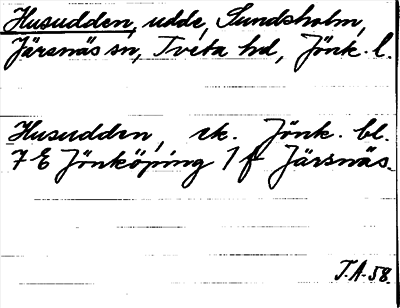 Husudden, udde, Sundsholm,
Järsnäs sn, Tveta hd, Jönk. l.
Husudden, ek. Jönk. bl.
7 E Jönköping 1 f Järsnäs.
T.A. 58.